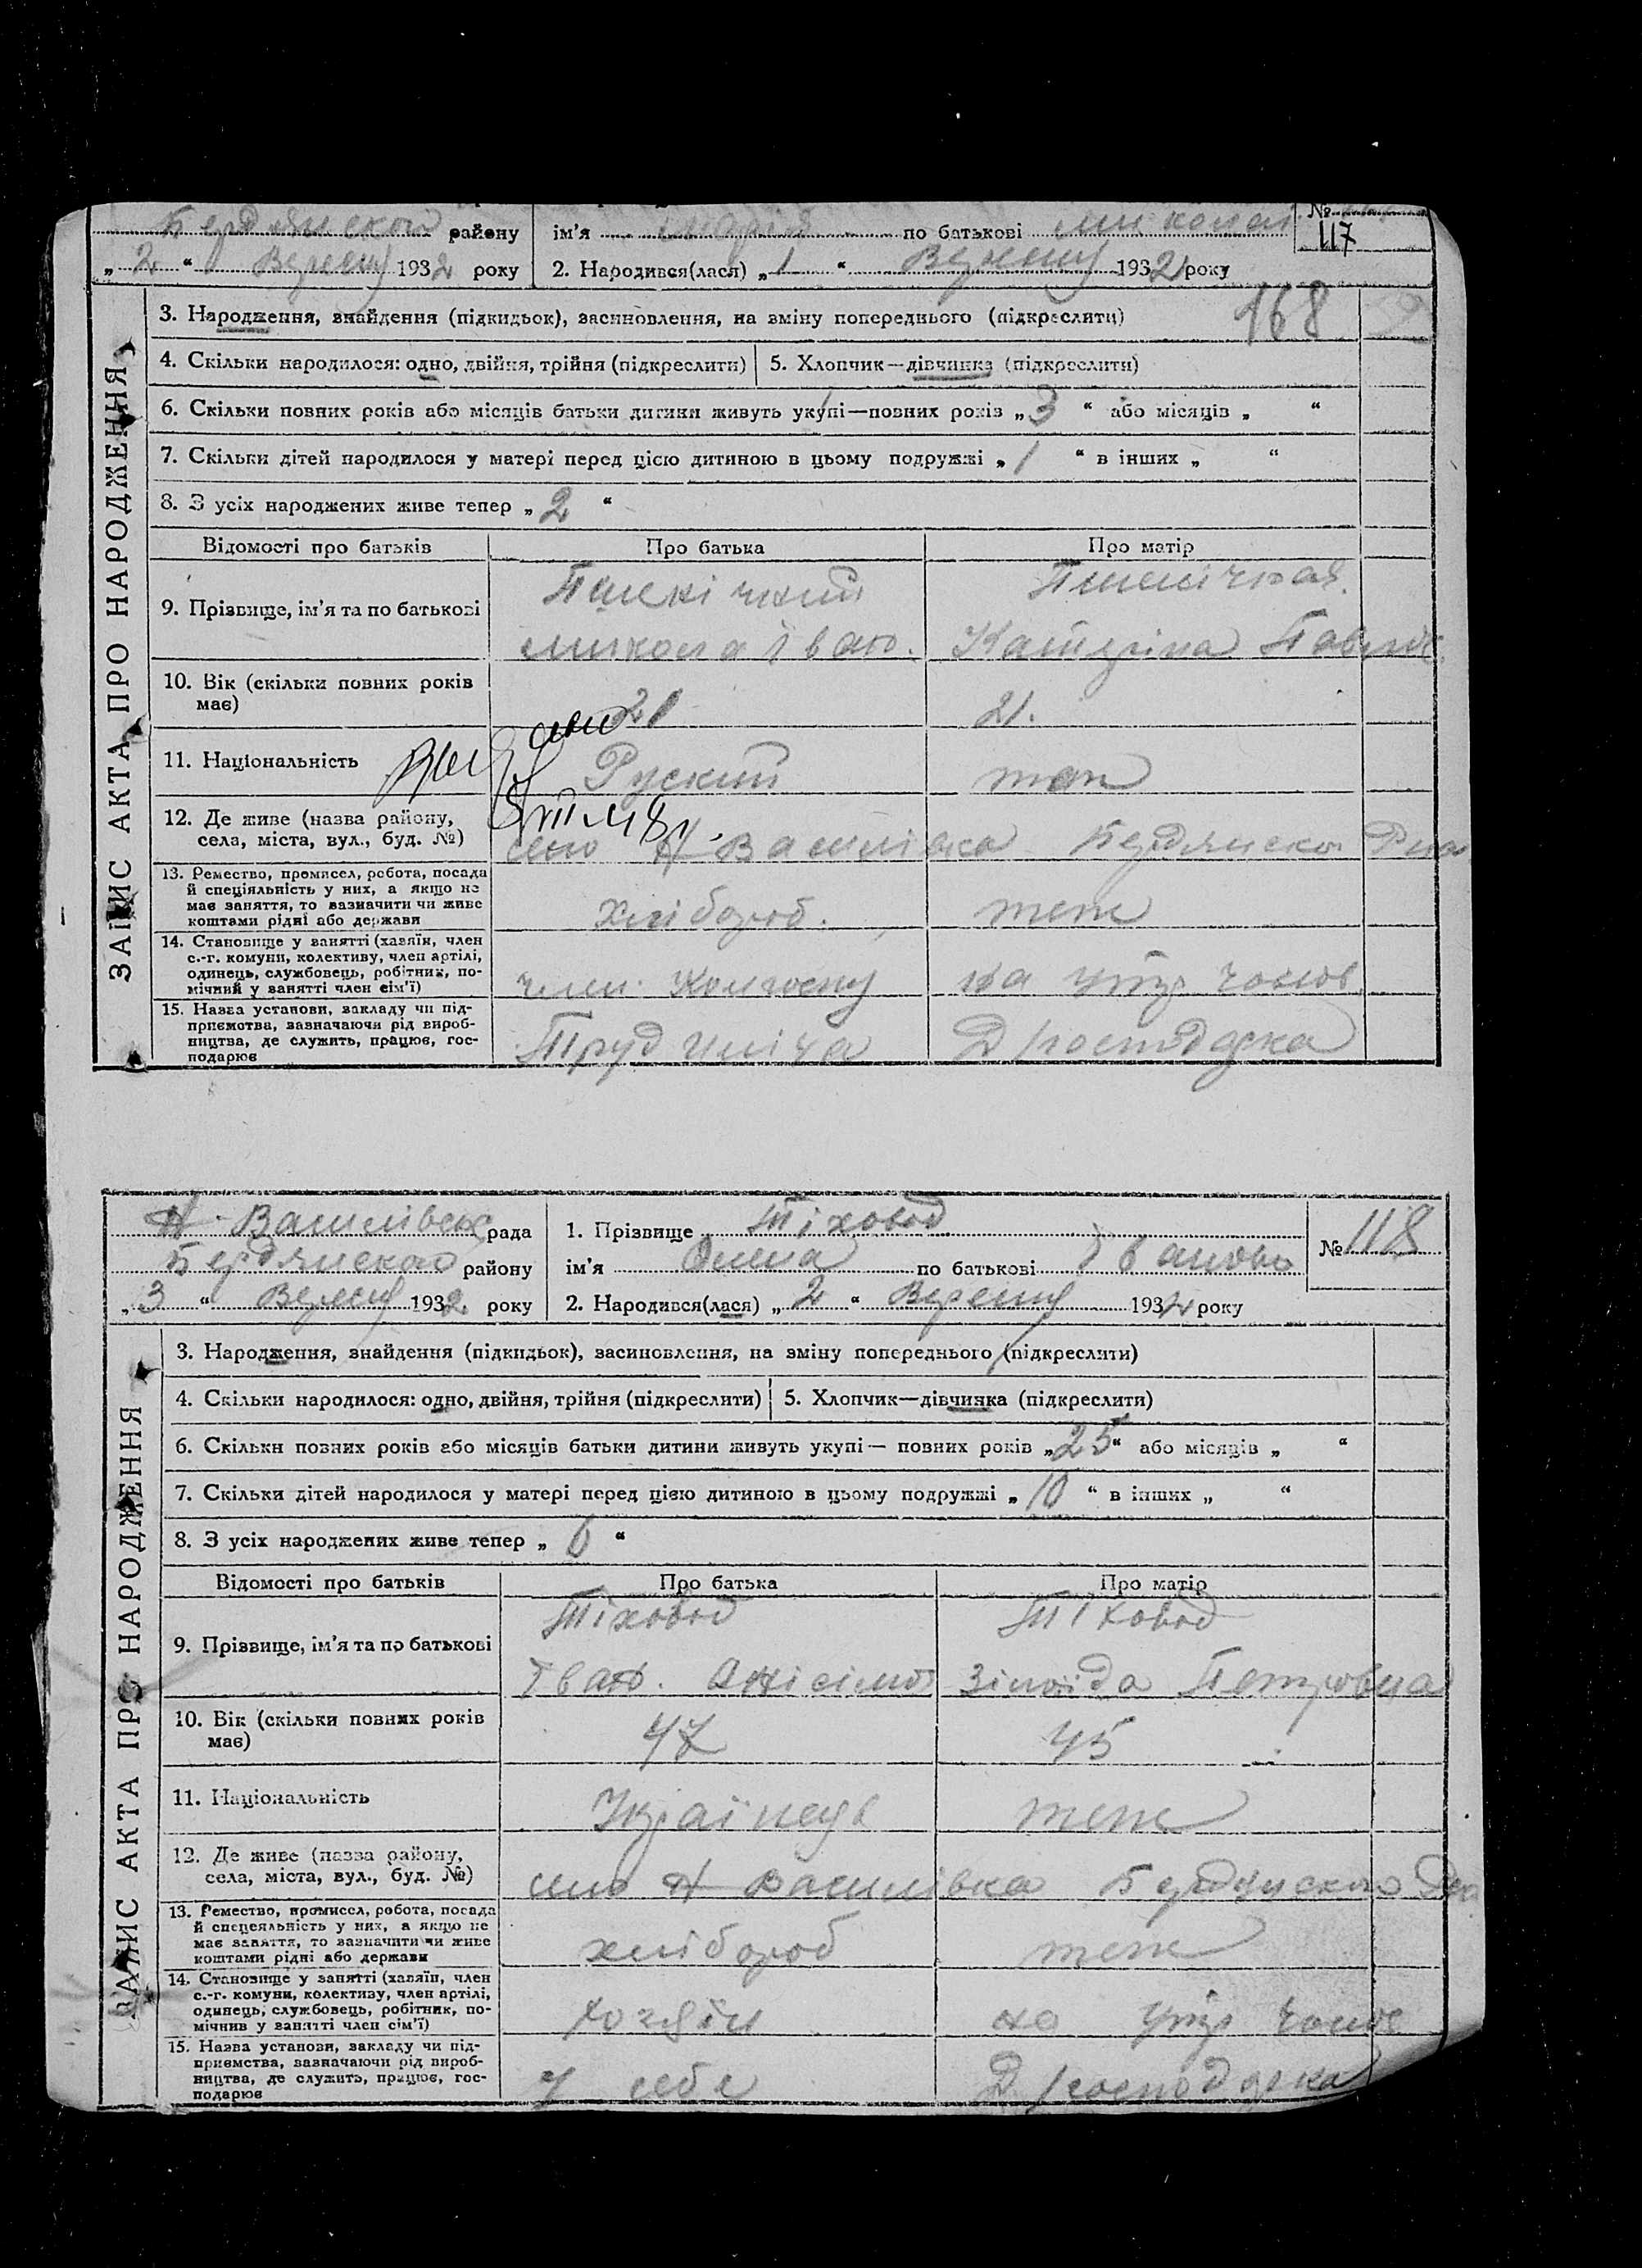 Бердянского району
ім'я Марія по батькові Миколаї
№ 117
„ 2 “ Вересня 1932 року
2. Народився(лася) „ 1 “ Вересня 1932 року
168
ЗАПИС АКТА ПРО НАРОДЖЕННЯ
3. Народження, знайдення (підкидьок), засиновлення, на зміну попереднього (підкреслити)
4. Скільки народилося: одно, двійня, трійня (підкреслити) 5. Хлопчик—дівчинка (підкреслити)
6. Скільки повних років або місяців батьки дитини живуть укупі—повних років „ 3 “ або місяців „ “
7. Скільки дітей народилося у матері перед цією дитиною в цьому подружжі „ 1 “ в інших „ “
8. З усіх народжених живе тепер „ 2 “
Відомості про батьків Про батька Про матір
9. Прізвище, ім'я та по батькові
Пшенічний Пшенічная.
Микола Іван. Катеріна Павлов.
10. Вік (скільки повних років має)
21 21.
11. Національність
Руский теж
12. Де живе (назва району, села, міста, вул., буд. №)
село Н Василівка Бердянско Рна
13. Ремество, промисел, робота, посада й спеціяльність у них, а якщо не має заняття, то вазначити чи живе коштами рідні або держави
хлібороб. теж
14. Становище у занятті (хазяїн, член с.-г. комуни, колективу, член артілі, одинець, службовець, робітник, помічний у занятті член сім'ї)
член. Колгоспу на утр. чолов.
15. Назва установи, закладу чи підприємства, зазначаючи рід виробництва, де служить, працює, господарює
Труд Іліча Д/господарка
Н. Василівськ рада
1. Прізвище Тіховод
№ 118
Бердянского району
ім'я Олена по батькові Івановна
„ 3 “ Вересня 1932 року
2. Народився(лася) „ 2 “ Вересня 1932 року
ЗАПИС АКТА ПРО НАРОДЖЕННЯ
3. Народження, знайдення (підкидьок), засиновлення, на зміну попереднього (підкреслити)
4. Скільки народилося: одно, двійня, трійня (підкреслити) 5. Хлопчик—дівчинка (підкреслити)
6. Скільки повних років або місяців батьки дитини живуть укупі — повних років „ 25 “ або місяців „ “
7. Скільки дітей народилося у матері перед цією дитиною в цьому подружжі „ 10 “ в інших „ “
8. З усіх народжених живе тепер „ 6 “
Відомості про батьків Про батька Про матір
9. Прізвище, ім'я та по батькові
Тіховод Тіховод
Іван. Анісімов Зіноїда Петровна
10. Вік (скільки повних років має)
47 45
11. Національність
Українець теж
12. Де живе (назва району, села, міста, вул., буд. №)
село Н Василівка Бердянского
13. Ремество, промисел, робота, посада й спецеяльність у них, а якщо не має заняття, то зазначити чи живе коштами рідні або держави
хлібороб теж
14. Становище у занятті (хазяїн, член с.-г. комуни, колективу, член артілі, одинець, службовець, робітник, помічнив у занятті член сім'ї)
хозяїн на утр чолов
15. Назва установи, закладу чи підприємства, зазначаючи рід виробництва, де служить, працює, господарює
У себе Д/господарка